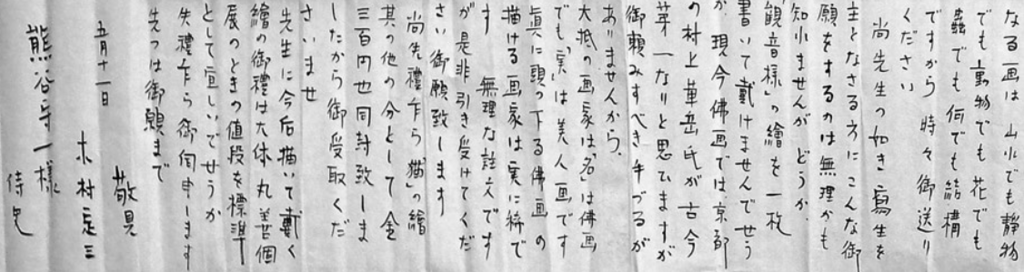 なる画は 山水でも静物
でも動物でも 花でも
虫でも何でも結構
ですから 時々御送り
ください
尚先生の如き寫生を
主となさる方にこんな御
願をするのは無理かも
知れませんが どうか
「観音様」の繪を一枚
書いて戴けませんでせう
か 現今佛画では京都
の村上華岳氏が古今
第一なりと思ひますが
御頼みすべき手づるが
ありませんから、
大抵の画家は「名」は佛画
でも「実」は美人画です
真に頭の下る佛画の
描ける画家は実に稀で
す 無理な註文です
が是非引き受けてくだ
さい御願致します
尚先禮乍ら「猫」の繪
其の他の分として金
三百円也同封致しま
したから御受取くだ
さいませ
先生に今后描いて戴く
繪の御禮は大体 丸善個
展のときの値段を標準
として宜しいでせうか
失禮乍ら御伺申します
先づは御願まで
敬具
五月十一日
木村定三
熊谷守一様
侍史